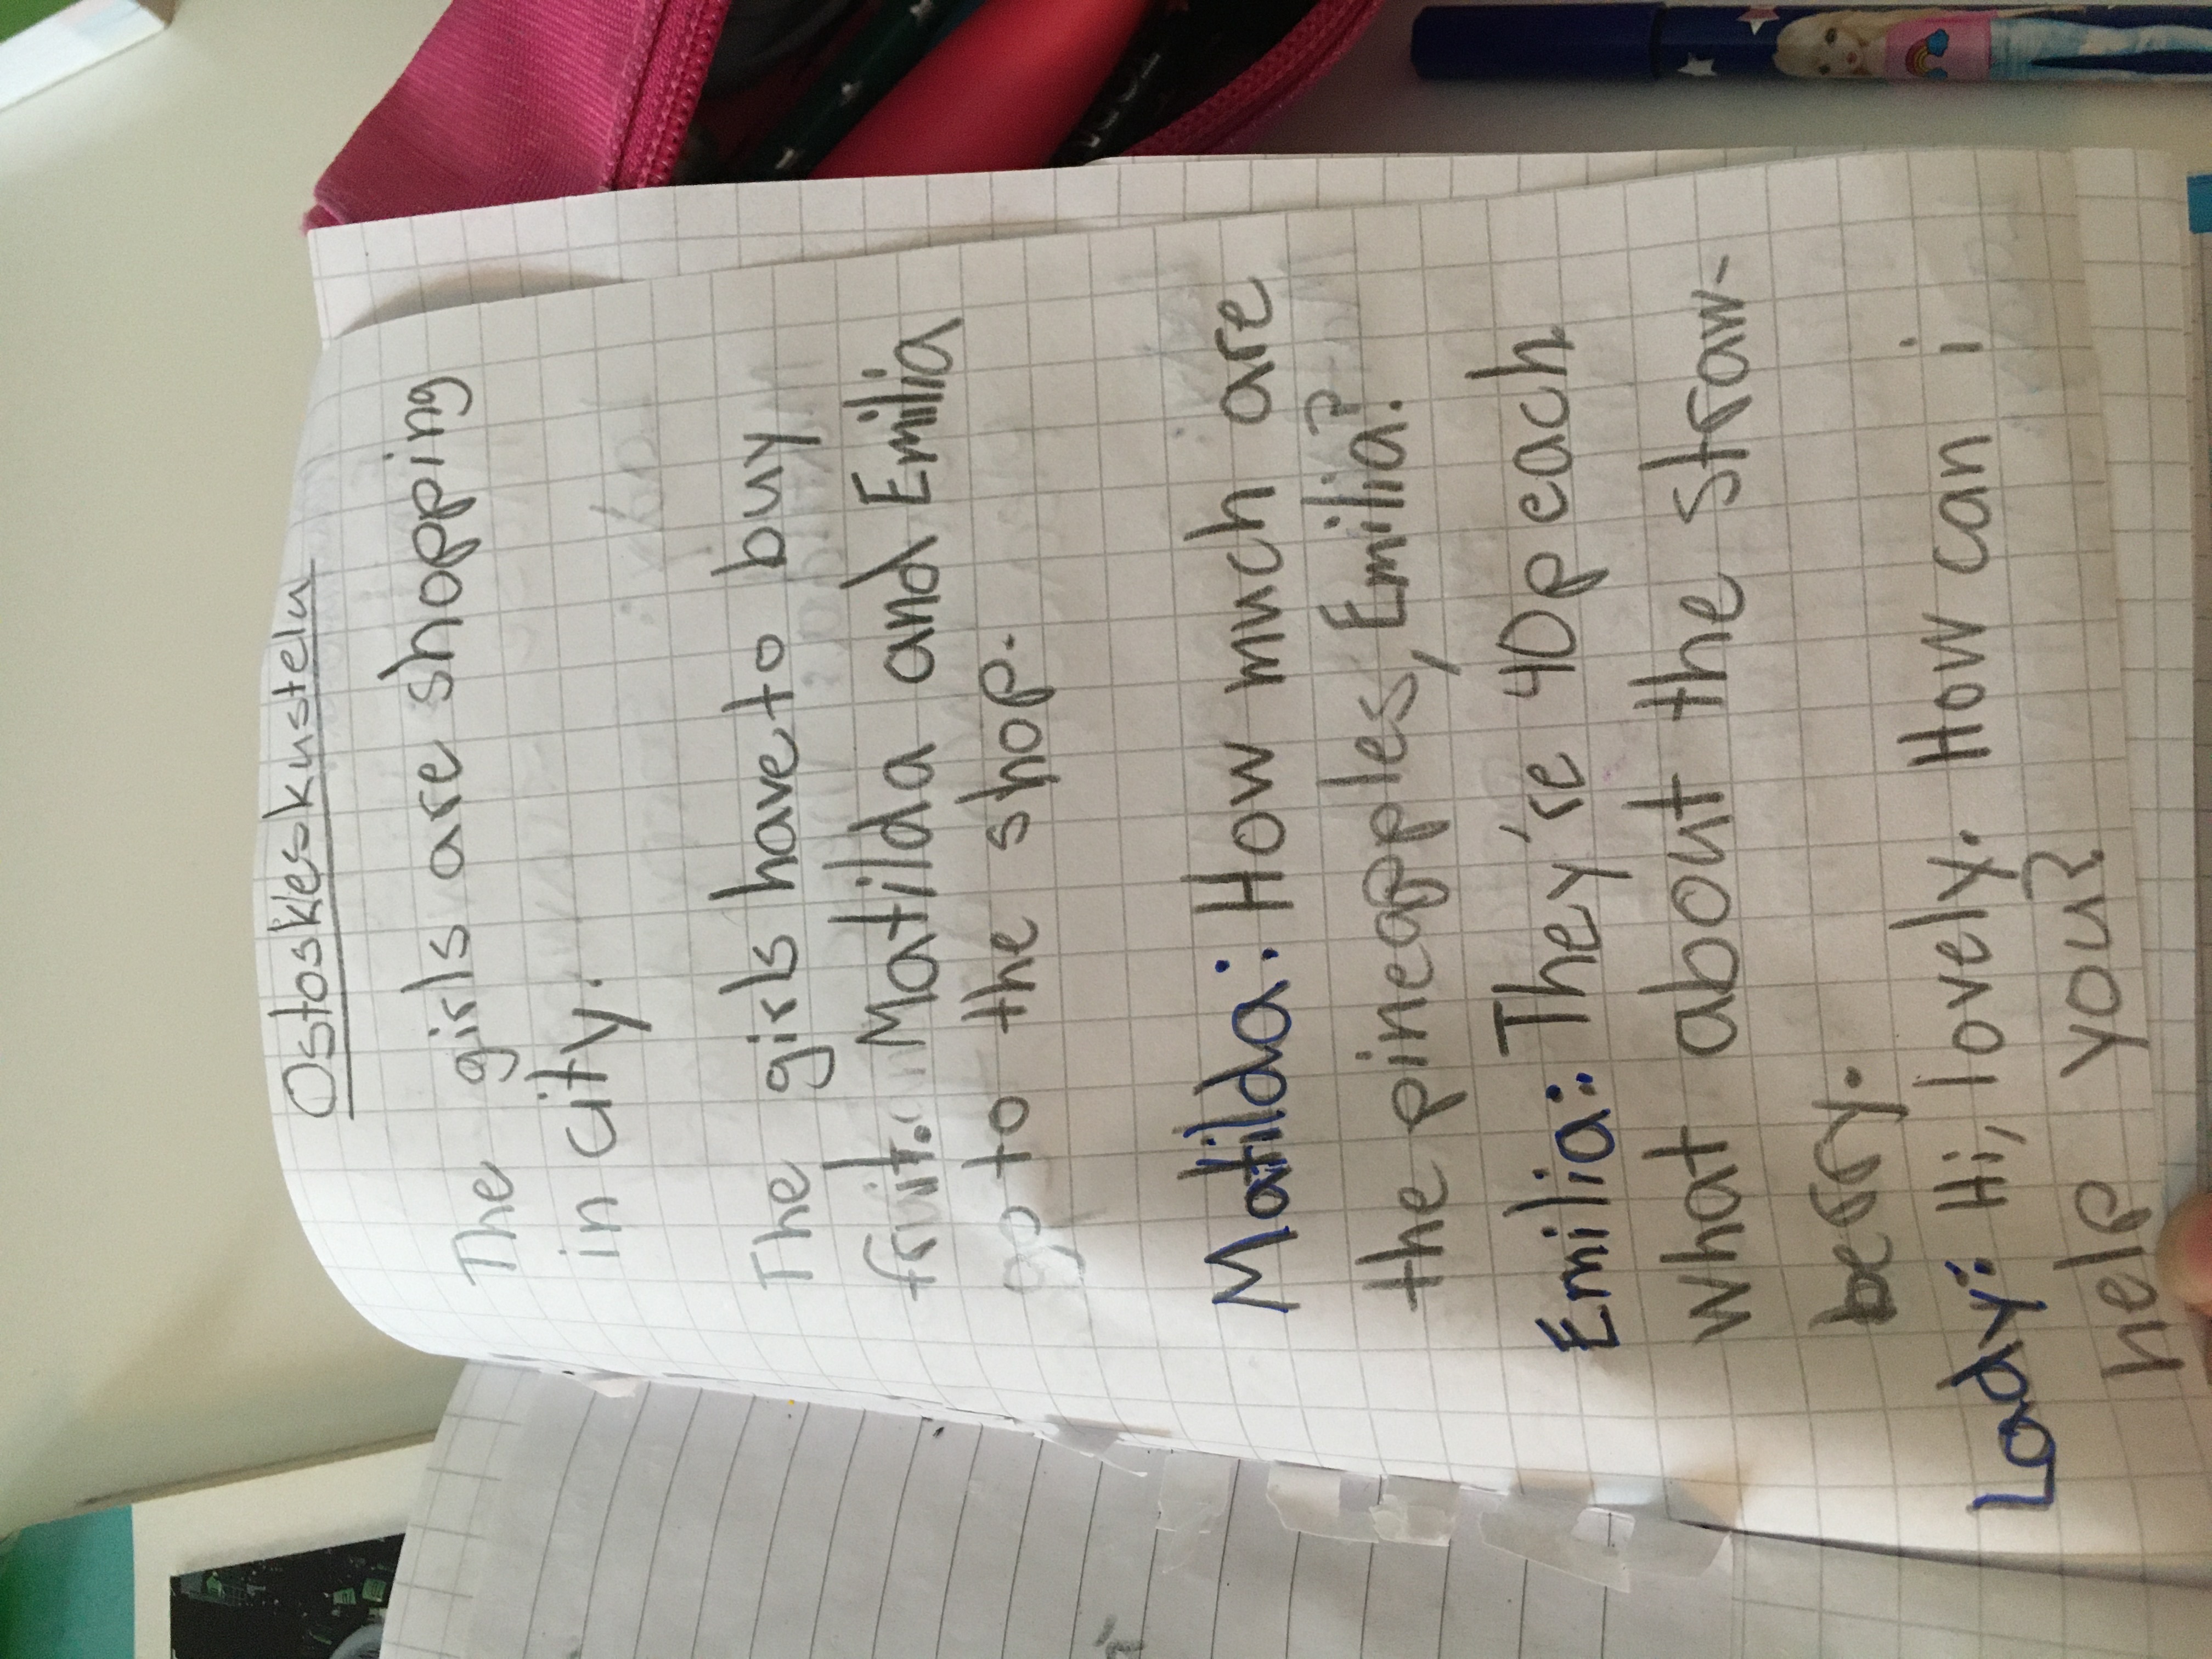 Ostoskleskustelu
The girls are shopping
in city.
The girls have to buy
fruit. Matilda and Emilia
go to the shop.
Matilda: How much are
the pineapples, Emilia?
Emilia: They're 40p each
what about the straw-
berry.
Lady: Hi, lovely. How can i
help you?